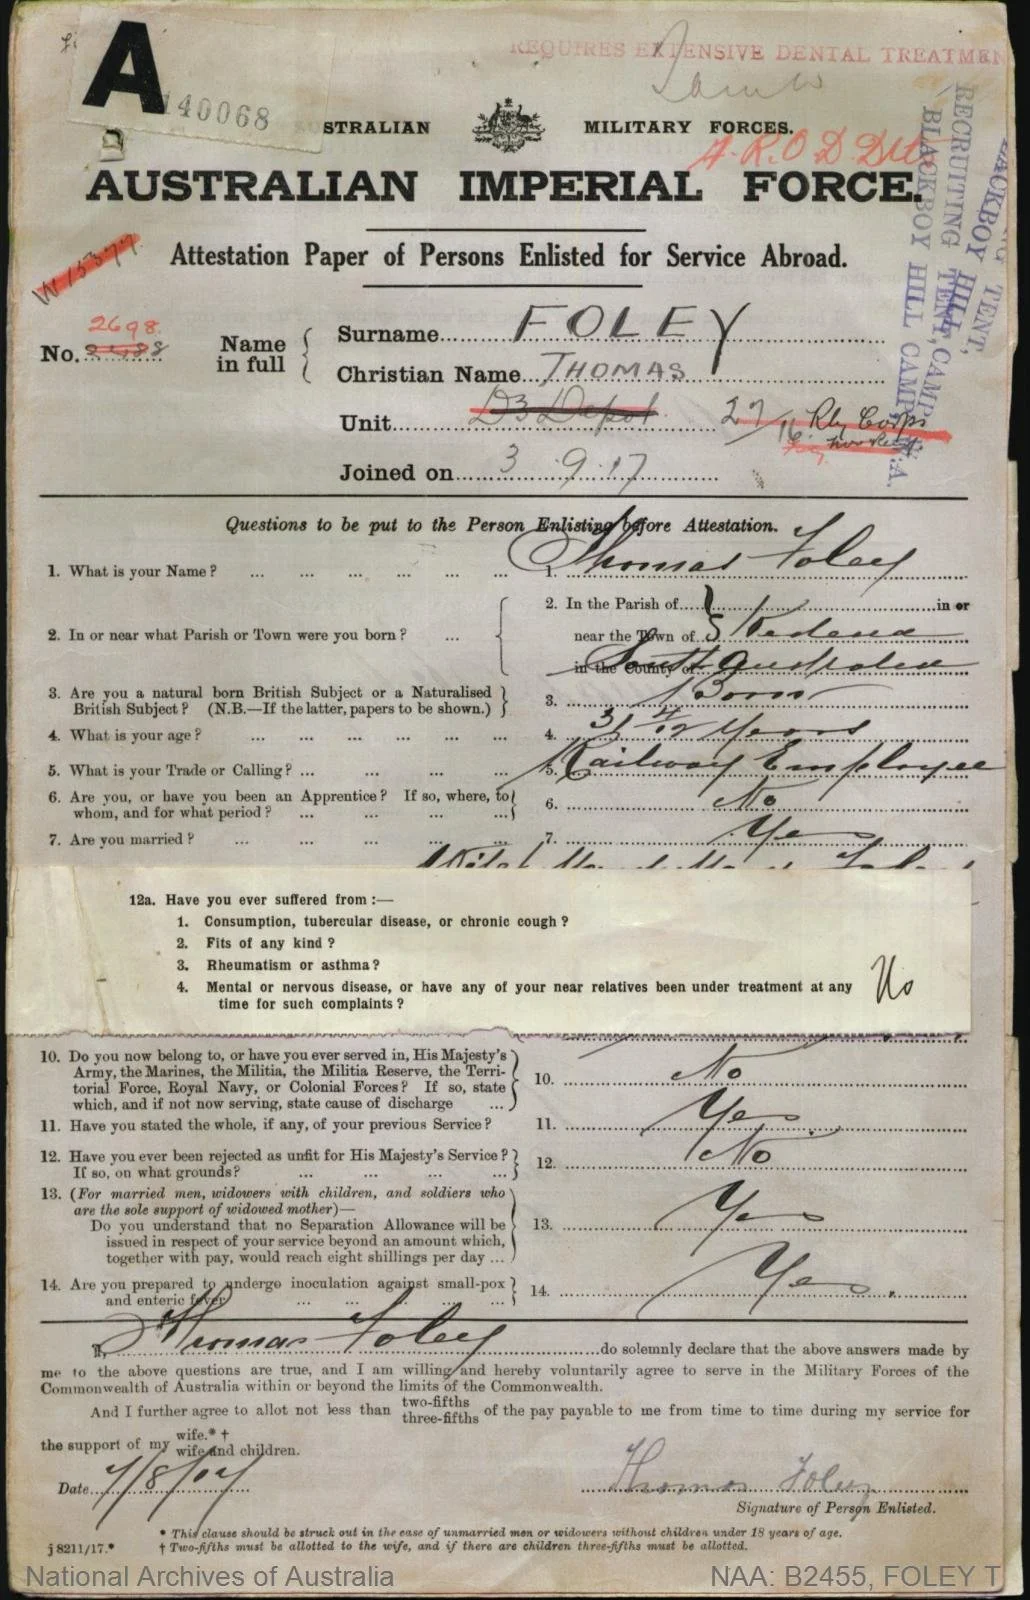 REQUIRES EXTENSIVE DENTAL TREATMEN
A
140068
AUSTRALIAN MILITARY FORCES.
A.R.O.D.
AUSTRALIAN IMPERIAL FORCE.
RECRUITING TENT, CAMP
BLACKBOY HILL CAMP, W.A.
BLACKBOY HILL
TENT,
Attestation Paper of Persons Enlisted for Service Abroad.
W15377
2698.
No.
Name in full
Surname FOLEY
Christian Name THOMAS
Unit D3 Depot 27/16 Rly Corps
Joined on 3.9.17
Questions to be put to the Person Enlisting before Attestation.
1. What is your Name? ... 1. Thomas Foley
2. In or near what Parish or Town were you born? ... 2. In the Parish of in or
near the Town of Kadena
in the County of South Australia
3. Are you a natural born British Subject or a Naturalised
British Subject? (N.B.—If the latter, papers to be shown.) 3. Born
4. What is your age? ... 4. 31 4/12 Years
5. What is your Trade or Calling? ... 5. Railway Employee
6. Are you, or have you been an Apprentice? If so, where, to
whom, and for what period? ... 6. No
7. Are you married? ... 7. Yes
12a. Have you ever suffered from:—
1. Consumption, tubercular disease, or chronic cough?
2. Fits of any kind?
3. Rheumatism or asthma?
4. Mental or nervous disease, or have any of your near relatives been under treatment at any
time for such complaints? No
10. Do you now belong to, or have you ever served in, His Majesty's
Army, the Marines, the Militia, the Militia Reserve, the Terri-
torial Force, Royal Navy, or Colonial Forces? If so, state
which, and if not now serving, state cause of discharge ... 10. No
11. Have you stated the whole, if any, of your previous Service? 11. Yes
12. Have you ever been rejected as unfit for His Majesty's Service?
If so, on what grounds? ... 12. No
13. (For married men, widowers with children, and soldiers who
are the sole support of widowed mother)—
Do you understand that no Separation Allowance will be
issued in respect of your service beyond an amount which,
together with pay, would reach eight shillings per day ... 13. Yes
14. Are you prepared to undergo inoculation against small-pox
and enteric fever ... 14. Yes.
I, Thomas Foley do solemnly declare that the above answers made by
me to the above questions are true, and I am willing and hereby voluntarily agree to serve in the Military Forces of the
Commonwealth of Australia within or beyond the limits of the Commonwealth.
And I further agree to allot not less than two-fifths three-fifths of the pay payable to me from time to time during my service for
the support of my wife.* † wife and children.
Date 7/8/17
Thomas Foley
Signature of Person Enlisted.
* This clause should be struck out in the case of unmarried men or widowers without children under 18 years of age.
j 8211/17.* † Two-fifths must be allotted to the wife, and if there are children three-fifths must be allotted.
National Archives of Australia NAA: B2455, FOLEY T